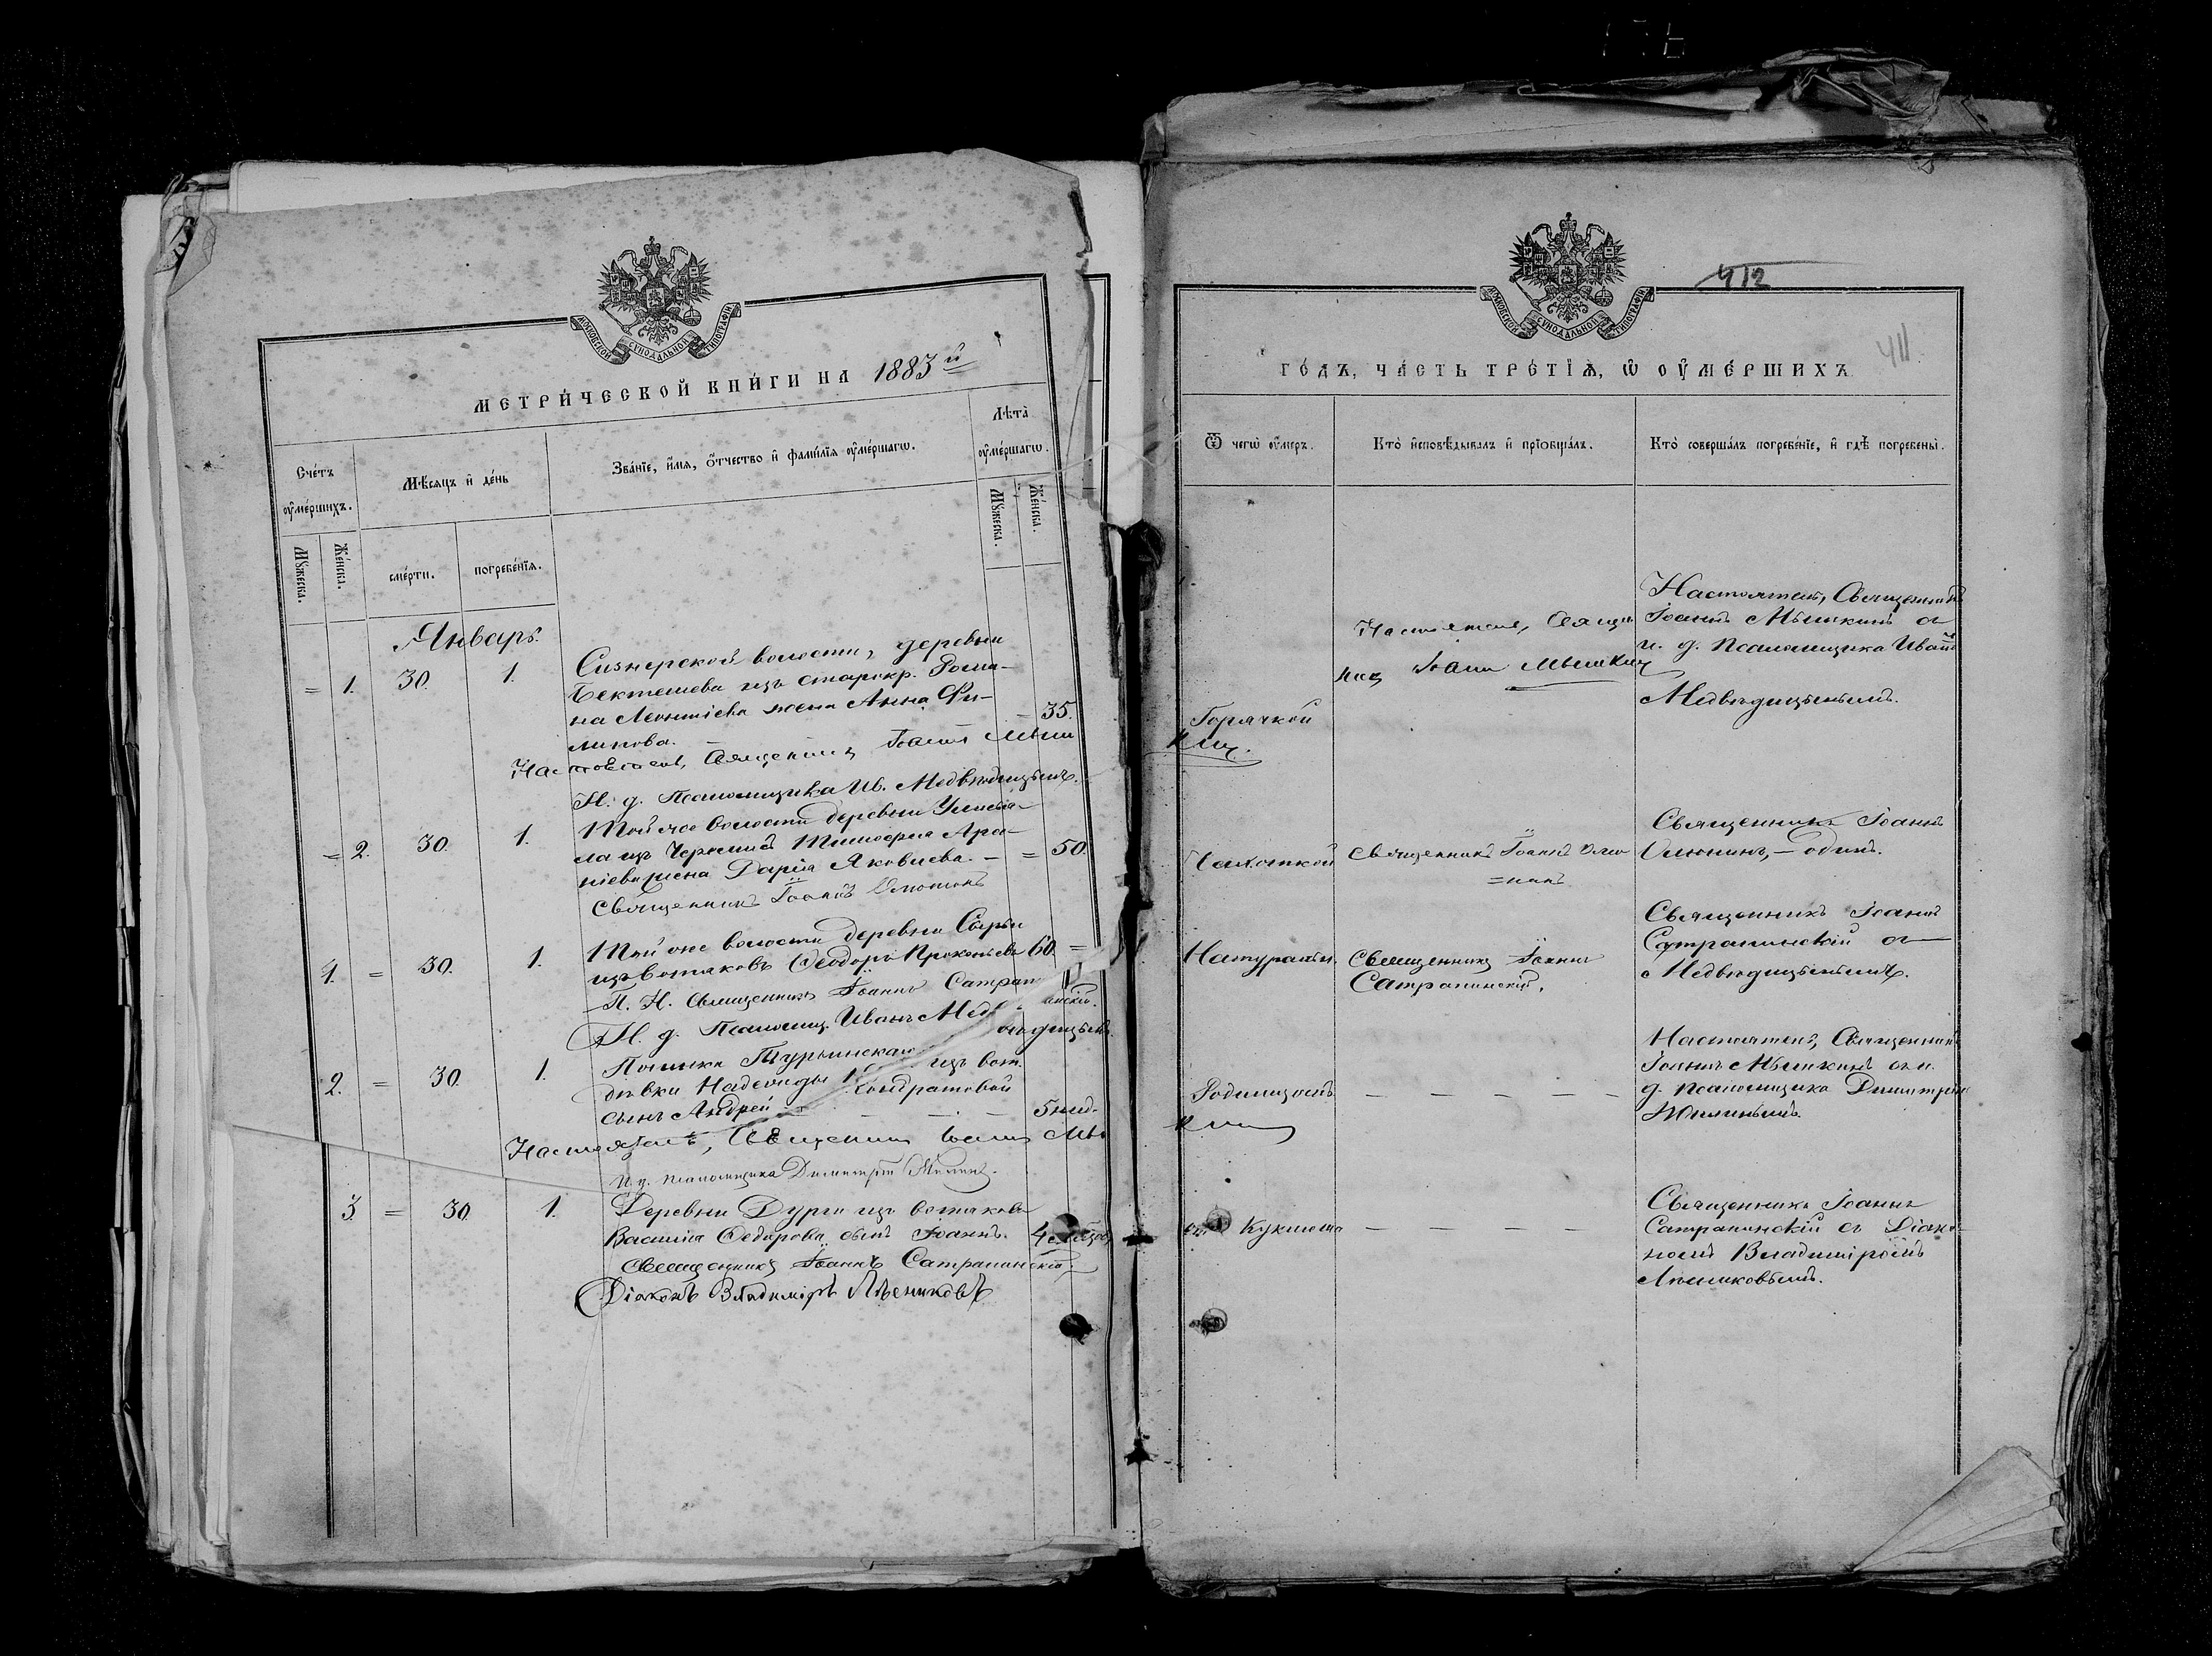 МОСКОВСКОЙ СѴНОДАЛЬНОЙ ТИПОГРАФІИ
МЕТРИ́ЧЕСКОЙ КНИ́ГИ НА 1883й
Сче́тъ ᲂумершихъ.
Мѣсяцъ и де́нь
Зва́нїе, и́мя, ѻ́тчество и фами́лїя ᲂуме́ршагѡ.
Лѣта̀ ᲂуме́ршагѡ.
Мꙋжеска.
Же́нска.
сме́рти.
погребе́нїя.
Мꙋжеска.
Же́нска.
Январь.
= 1. 30. 1. Сизнерской волости, деревни
Бектешева изъ старокр. Рома-
на Леонтіева жена Анна Фи-
липова. – 35.
Настоятель, Священникъ Іоаннъ Мыш
И. д. Псаломщика Ив. Медвѣдицынъ.
= 2. 30. 1. Той же волости деревни
изъ Черемисъ Тимофея Ара-
жена Дарія Яковлева. – = 50.
Священникъ Іоаннъ Олюнинъ
1. = 30. 1. Той же волости деревни
изъ вотяковъ Ѳеодоръ Прокопьевъ 60. =
Священникъ Іоаннъ Сатрапинскій.
И. д. Псаломщ. Иванъ Медвѣдицынъ.
2. = 30. 1. Починка изъ вот.
дѣвки Надежды Кондратовой
сынъ Андрей – – – 5 нед.
Настоятель, Священникъ Іоаннъ Мы
И. д. псаломщика Димитрій
3. = 30. 1. Деревни Дурги изъ вотяковъ
Василія Ѳедорова сынъ Іоаннъ. 4
Священникъ Іоаннъ Сатрапинскій
Діаконъ Владиміръ
МОСКОВСКОЙ СѴНОДАЛЬНОЙ ТИПОГРАФІИ
412
411.
ГО́ДЪ, ЧА́СТЬ ТРЕ́ТІѦ, Ѡ ОУМЕ́РШИХЪ
Ѿ чегѡ ᲂу́меръ.
Кто̀ исповѣ́дывалъ и прїобща́лъ.
Кто̀ соверша́лъ погребе́нїе, и гдѣ̀ погребены̀.
Горячкой
кин.
Настоятель, Священ
никъ Іоаннъ Мышкин
Настоятель, Священникъ
Іоаннъ Мышкинъ съ
и. д. Псаломщика Иваномъ
Медвѣдицынымъ.
Чахоткой
Священникъ Іоаннъ Олю
=нинъ
Священникъ Іоаннъ
Олюнинъ, – одинъ.
Натуральн.
Священникъ Іоаннъ
Сатрапинскій.
Священникъ Іоаннъ
Сатрапинскій съ
Медвѣдицынымъ.
Родимцомъ
– – – – –
Настоятель, Священникъ
Іоаннъ Мышкинъ съ и.
д. псаломщика Димитріем
отъ Кукшеша
– – – –
Священникъ Іоаннъ
Сатрапинскій съ Діако-
номъ Владиміромъ